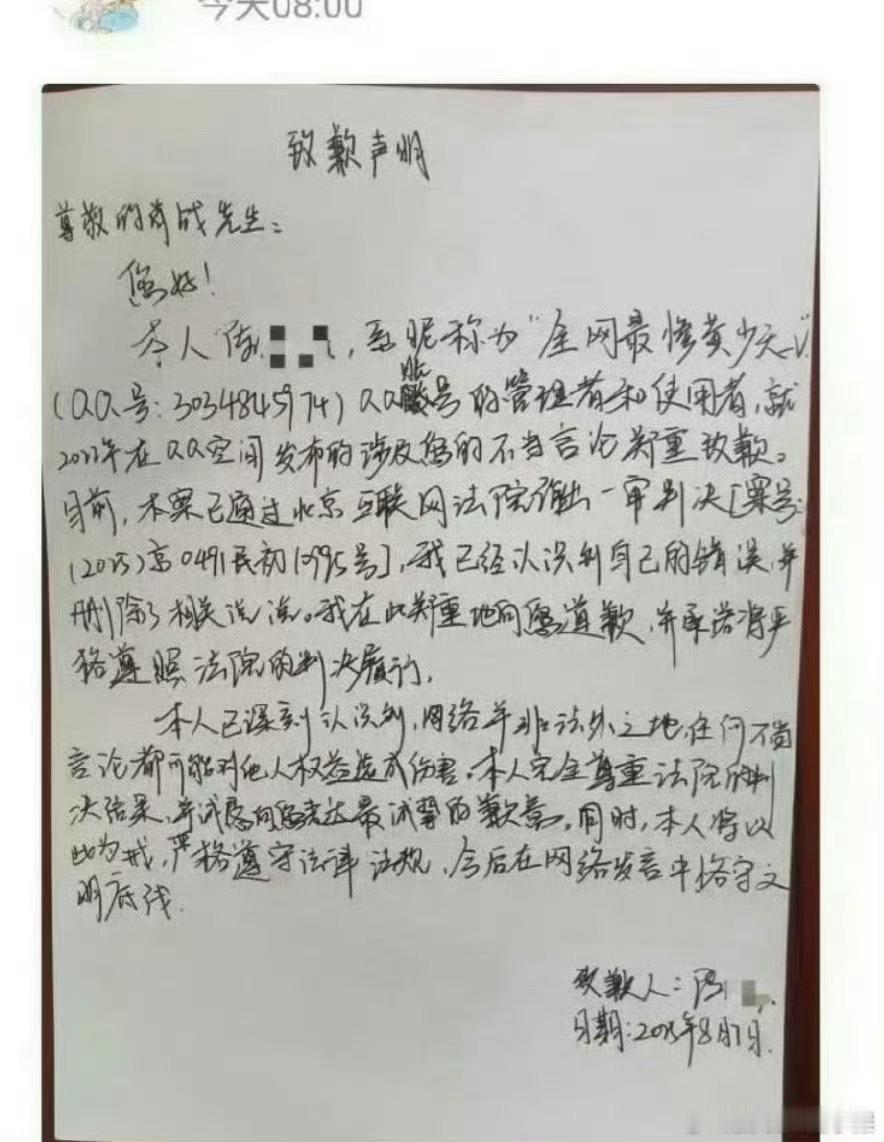 今天08:00
致歉声明
尊敬的肖战先生：
您好！
本人陈，系昵称为"全网最惨黄少天
（QQ号：3034845974）QQ账号的管理者和使用者，就
2022年在QQ空间发布的涉及您的不当言论郑重致歉。
目前，本案已通过北京互联网法院作出一审判决［案号：
（2025）京0491民初 号］，我已经认识到自己的错误，并
删除了相关说说。我在此郑重地向您道歉，并承诺将严
格遵照法院的判决履行。
本人已深刻认识到，网络并非法外之地，任何不当
言论都可能对他人权益造成伤害。本人完全尊重法院的判
决结果，并诚恳向您表达最诚挚的歉意。同时，本人将以
此为戒，严格遵守法律法规，今后在网络发言中恪守文
明底线。
致歉人：陈
日期：2025年8月7日.